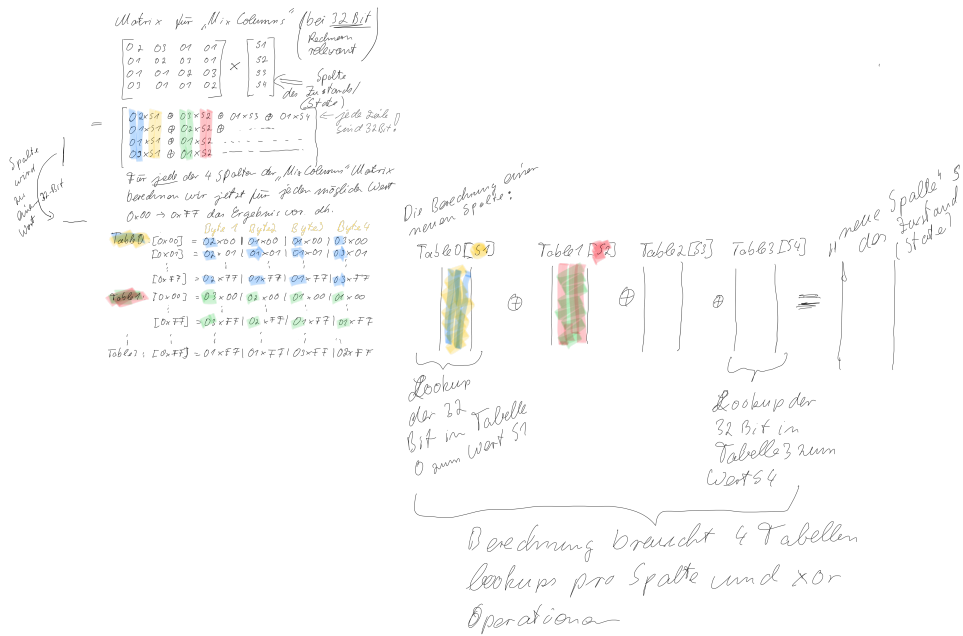 Matrix für „Mix Columns"
(bei 32 Bit
Rechnern
relevant)
02 03 01 01
01 02 03 01
01 01 02 03
03 01 01 02
×
S1
S2
S3
S4
Spalte
des Zustands/
(State)
= 02×S1 ⊕ 03×S2 ⊕ 01×S3 ⊕ 01×S4
01×S1 ⊕ 02×S2 ⊕
01×S1 ⊕ 01×S2
03×S1 ⊕ 01×S2
jede Zeile
sind 32 Bit!
Spalte
wird
zu
32 Bit
Wort
Für jede der 4 Spalten der „Mix Columns" Matrix
berechnen wir jetzt für jeden möglichen Wert
0x00 → 0xFF das Ergebnis vor. dh.
Byte 1 Byte 2 Byte 3 Byte 4
Table0: [0x00] = 02×00 | 01×00 | 01×00 | 03×00
[0x01] = 02×01 | 01×01 | 01×01 | 03×01
[0xFF] = 02×FF | 01×FF | 01×FF | 03×FF
Table1: [0x00] = 03×00 | 02×00 | 01×00 | 01×00
[0xFF] = 03×FF | 02×FF | 01×FF | 01×FF
[0xFF] = 01×FF | 01×FF | 03×FF | 02×FF
Die Berechnung einer
neuen Spalte:
Table0[S1] Table1[S2] Table2[S3] Table3[S4]
⊕ ⊕ ⊕ =
„neue Spalte"
des Zustand
(State)
Lookup
der 32
Bit in Tabelle
0 zum Wert S1
Lookup der
32 Bit in
Tabelle 3 zum
Wert S4
Berechnung braucht 4 Tabellen
lookups pro Spalte und xor
Operationen